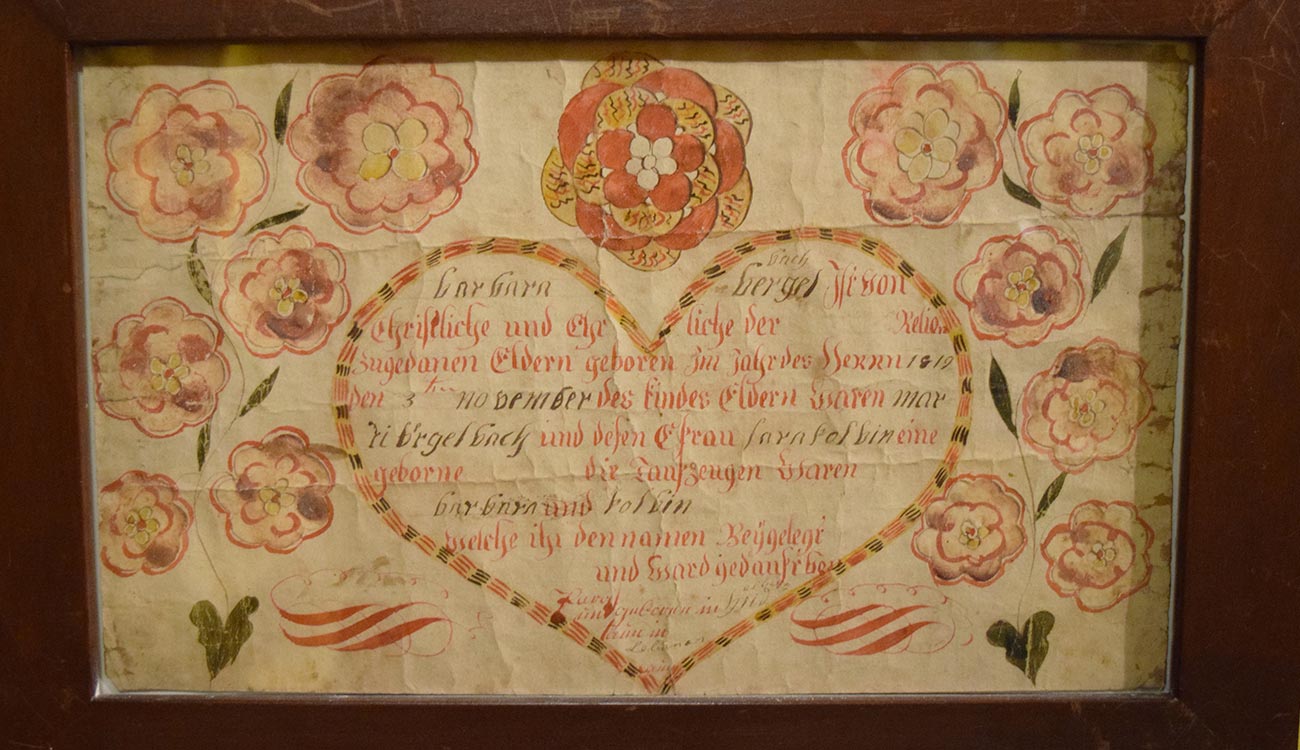 barbara bergel Ist von
bach
Christliche und Ehr liche der Relion
Zugedanen Eldern geboren Im Jahr des Herrn 1819
den 3ten november des kindes Eldern Waren mar
ti bergelbach und desen Efrau sara kolbin eine
geborne die Taufzeugen Waren
barbara und kolbin
welche ihr den namen Beÿgelegt
und Ward gedauft den
und geboren in
taun in
Lebanon